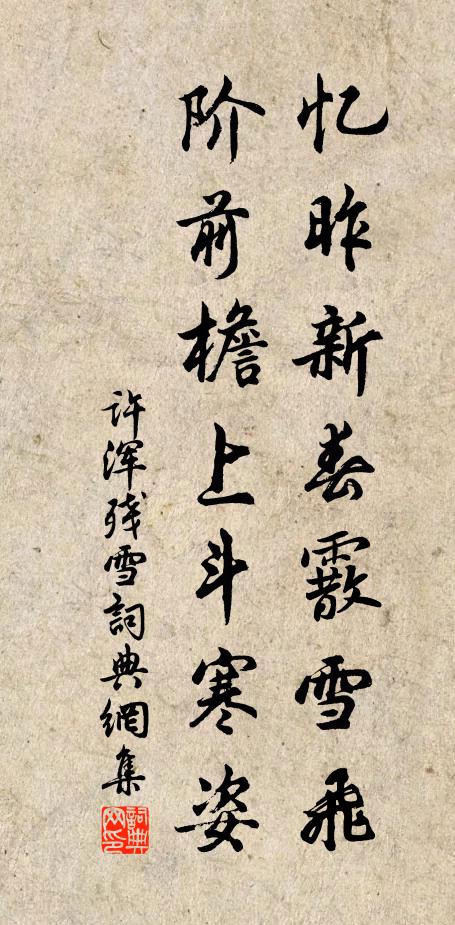 忆昨新春霰雪飞
阶前檐上斗寒姿
许浑残雪詞典網集
詞典网印